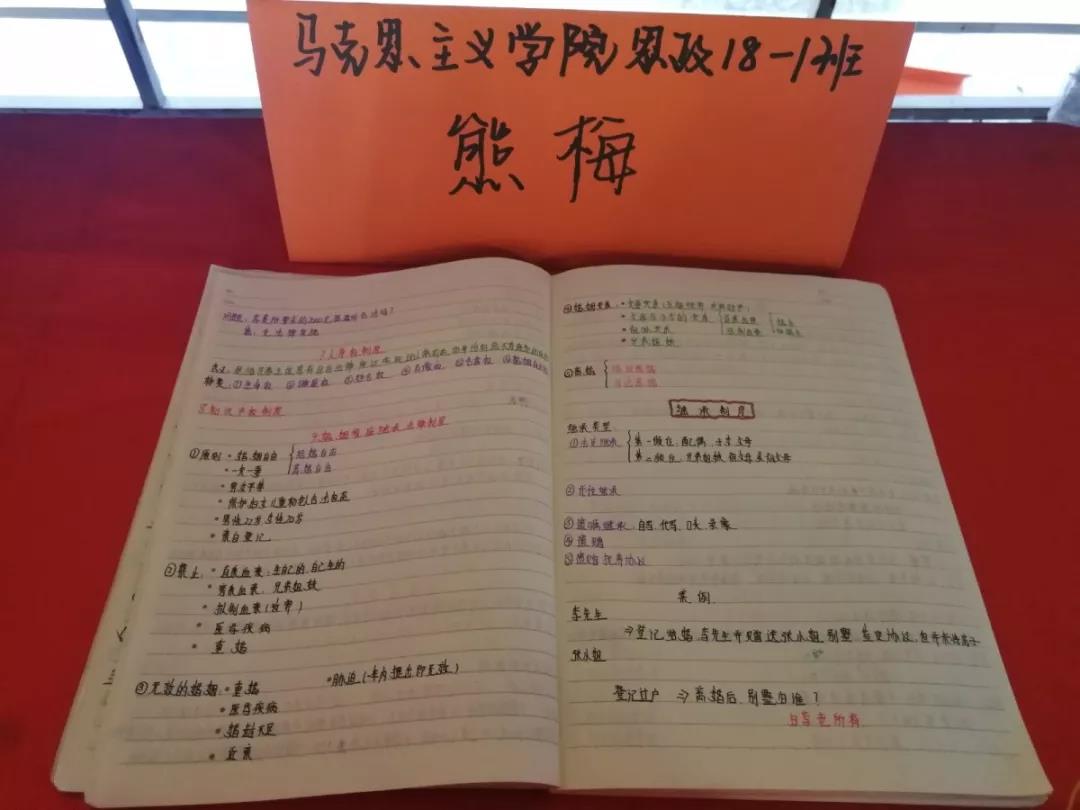 马克思主义学院思政18-1班
熊梅
7人身权制度
种类:①生命权 ②健康权 ③姓名权 ④肖像权 ⑤名誉权 ⑥婚姻自主权
8知识产权制度
9.婚姻家庭继承法律制度
①原则·婚姻自由 结婚自由
离婚自由
·一夫一妻
·男女平等
·保护妇女儿童和老人合法权益
·男性22岁女性20岁
·亲自登记
②禁止:·直系血亲:生自己的,自己生的
·旁系血亲:兄弟姐妹
·拟制血亲(收养)
·医学疾病
·重婚
③无效的婚姻:·重婚 ·胁迫(一年内提出即无效)
·医学疾病
·婚龄不足
·近亲
④婚姻关系:
⑤离婚 协议离婚
继承制度
继承类型
①法定继承 第一顺位:配偶、子女、父母
第二顺位:兄弟姐妹、祖父母、外祖父母
③遗嘱继承:自书、代书、口头、录像
④遗赠
⑤遗赠扶养协议
案例
李先生
⇒登记结婚,李先生并赠送张小姐别墅
张小姐
登记过户 ⇒离婚后,别墅归谁?